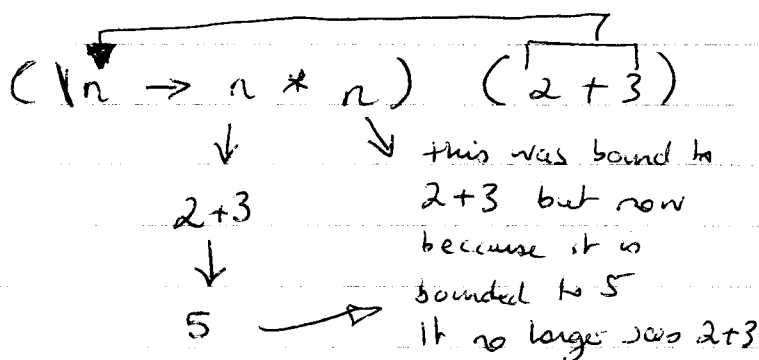 (\n → n * n) (2 + 3)
this was bound to
2+3 but now
because it is
bounded to 5
it no longer 2+3
2+3
5